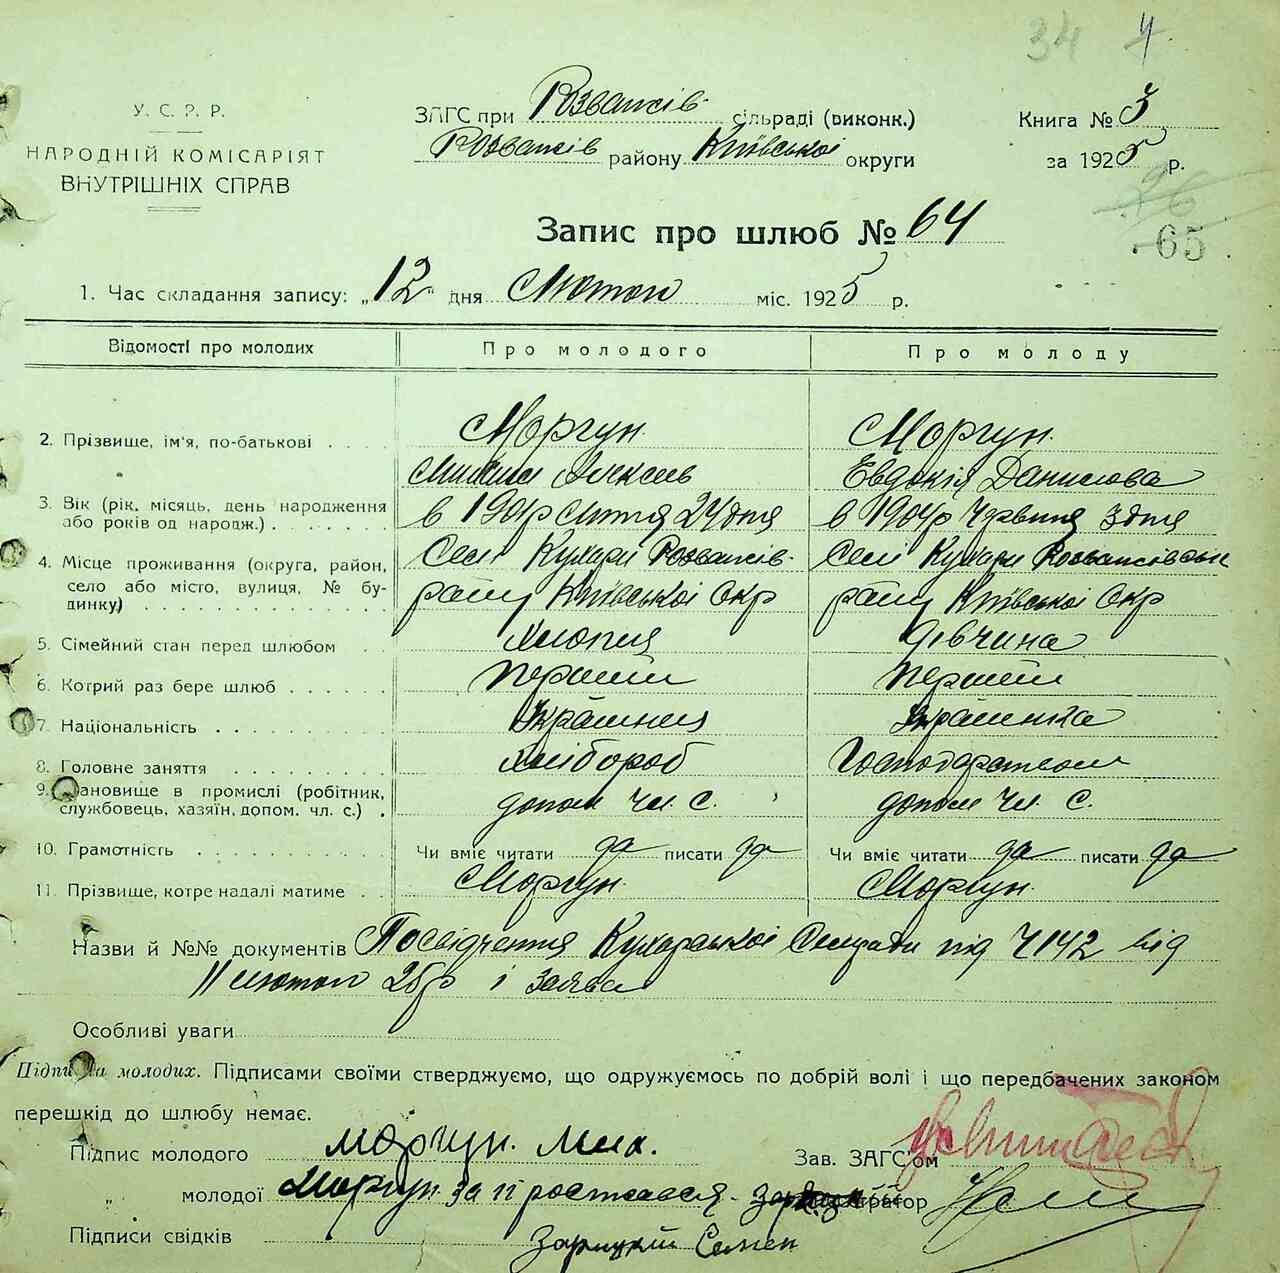 34 4
У. С. Р. Р.
НАРОДНІЙ КОМІСАРІЯТ
ВНУТРІШНІХ СПРАВ
ЗАГС при Розважів сільраді (виконк.)
Розважів району Київської округи
Книга № 3
за 1925 р.
26
65
Запис про шлюб № 64
1. Час складання запису: „12" дня Лютого міс. 1925 р.
Відомості про молодих
Про молодого
Про молоду
2. Прізвище, ім'я, по-батькові
Моргун
Моргун
Евдокія Данилова
3. Вік (рік, місяць, день народження або років од народж.)
в 1904р 24 дня
в 1904р Червня 3 дня
4. Місце проживання (округа, район, село або місто, вулиця, № будинку)
Селі Кухари Розважів
райну Київської Окр
Селі Кухари
райну Київської Окр
5. Сімейний стан перед шлюбом
хлопец
дівчина
6. Котрий раз бере шлюб
перший
перший
7. Національність
Українец
Украинка
8. Головне заняття
хлібороб
9. Становище в промислі (робітник, службовець, хазяїн, допом. чл. с.)
допом чл. с.
допом чл. с.
10. Грамотність
Чи вміє читати да писати да
Чи вміє читати да писати да
11. Прізвище, котре надалі матиме
Моргун
Моргун
Назви й №№ документів Посвідчення Кухарської Сельради під Ч 142 від
11 лютого 25р і заява
Особливі уваги
Підписи молодих. Підписами своїми стверджуємо, що одружуємось по добрій волі і що передбачених законом
перешкід до шлюбу немає.
Підпис молодого Моргун. Мих.
Зав. ЗАГС'ом
„ молодої Моргун за її
Реєстратор
Підписи свідків Зарицкій Семен